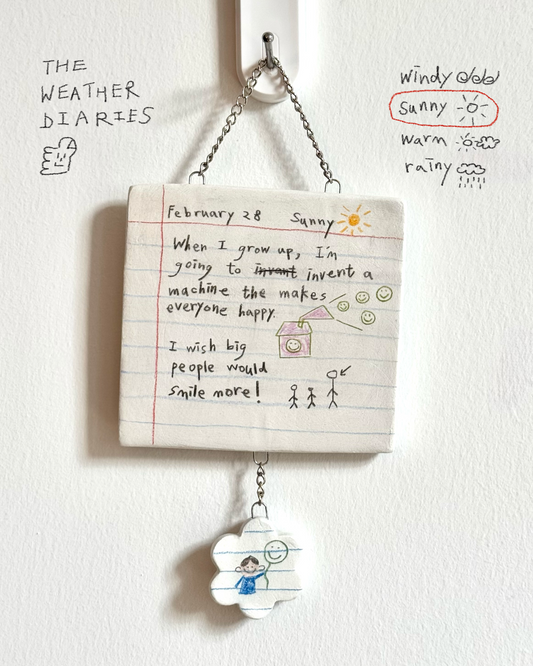 THE
WEATHER
DIARIES
windy
sunny
warm
rainy
February 28 Sunny
When I grow up, I'm
going to invant invent a
machine the makes
everyone happy.
I wish big
people would
smile more!